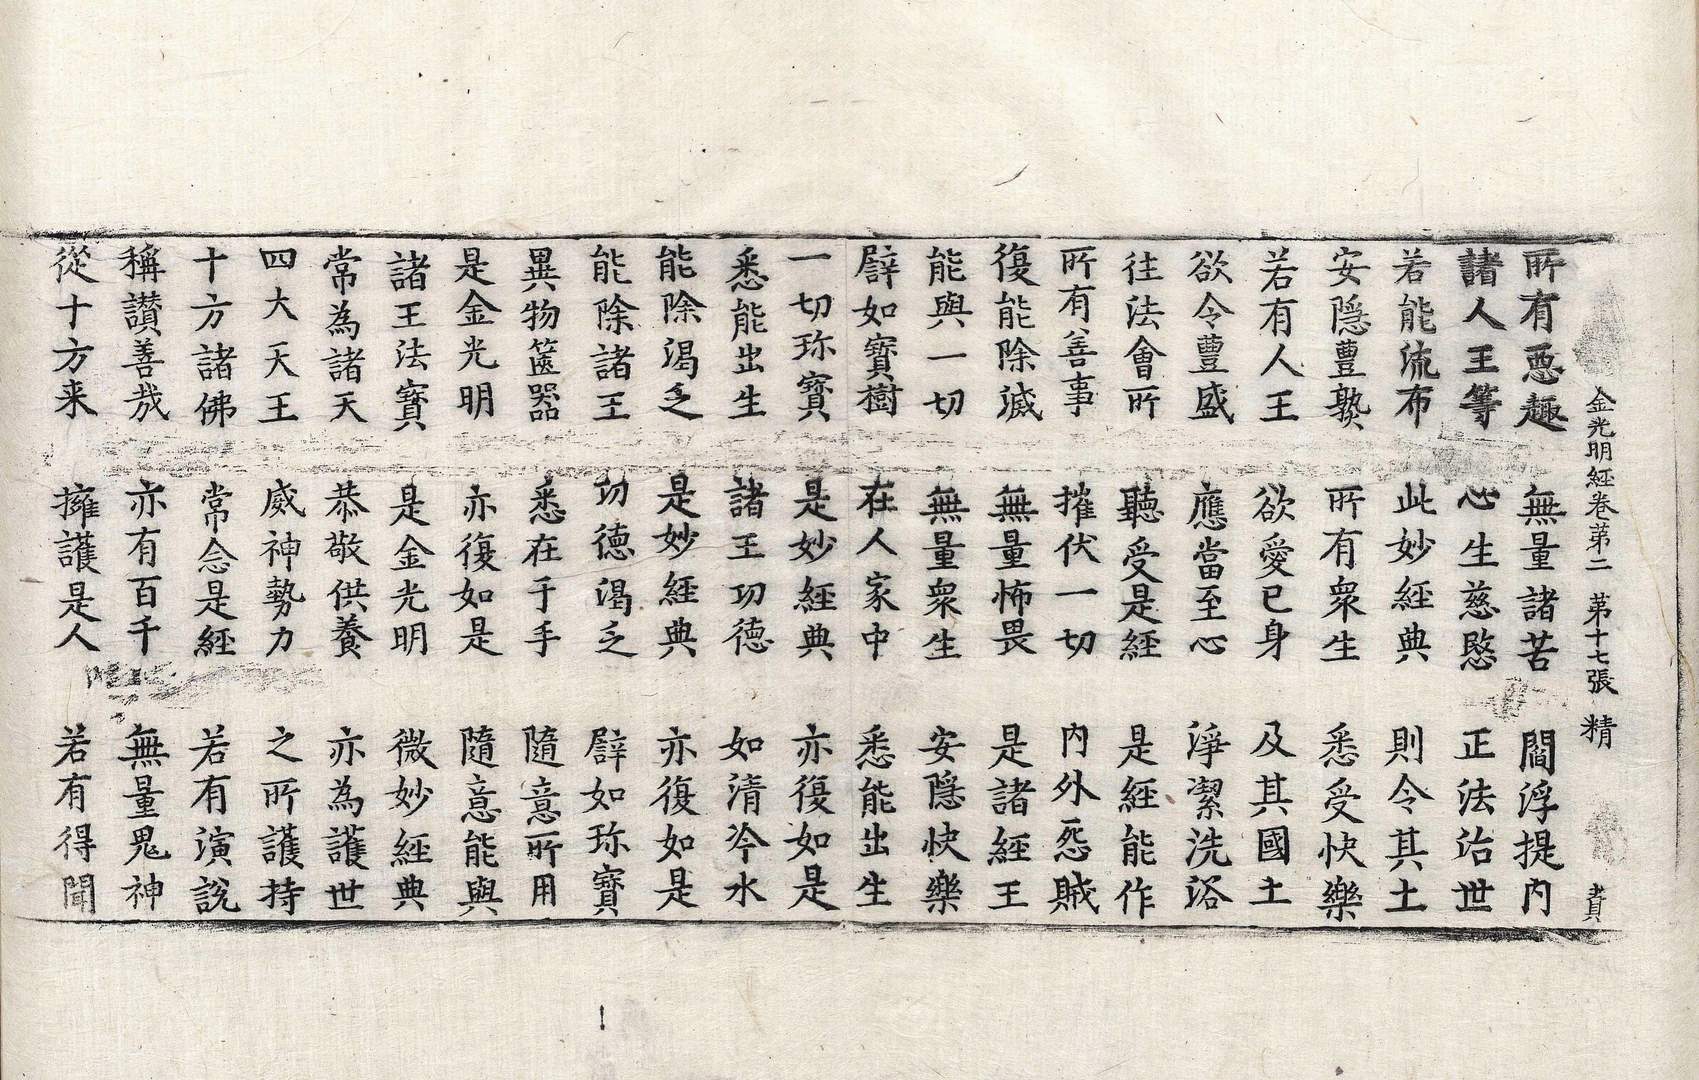 金光明經卷第二 第十七張 精
所有惡趣 無量諸苦 閻浮提內
諸人王等 心生慈愍 正法治世
若能流布 此妙經典 則令其土
安隱豊熟 所有衆生 悉受快樂
若有人王 欲愛己身 及其國土
欲令豊盛 應當至心 淨潔洗浴
往法會所 聽受是經 是經能作
所有善事 摧伏一切 內外怨賊
復能除滅 無量怖畏 是諸經王
能與一切 無量衆生 安隱快樂
譬如寶樹 在人家中 悉能出生
一切珎寶 是妙經典 亦復如是
悉能出生 諸王功德 如清冷水
能除渴乏 是妙經典 亦復如是
能除諸王 功德渴乏 譬如珎寶
異物篋器 悉在于手 隨意所用
是金光明 亦復如是 隨意能與
諸王法寶 是金光明 微妙經典
常為諸天 恭敬供養 亦為護世
四大天王 威神勢力 之所護持
十方諸佛 常念是經 若有演說
稱讃善哉 亦有百千 無量鬼神
從十方来 擁護是人 若有得聞